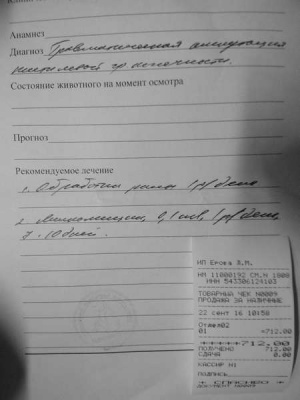 Анамнез
Диагноз Травматическая ампутация
кистевой гр. конечности.
Состояние животного на момент осмотра
Прогноз
Рекомендуемое лечение
1. Обработка раны 1 р/день
2. Линкомицин, 0,1 1 р/день,
7-10 дней.
ИП Ерова Л.М.
НМ 11000192 СМ.N 1088
ИНН 543306124103
ТОВАРНЫЙ ЧЕК N0009
ПРОДАЖА ЗА НАЛИЧНЫЕ
22 сент 16 10:58
Отдел02
01 =712.00
712.00
ПОЛУЧЕНО 712.00
СДАЧА 0.00
КАССИР N1
ПОДПИСЬ
СПАСИБО